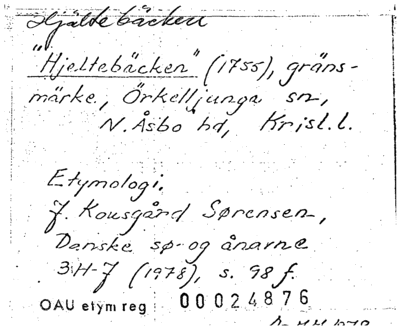 Hjältebäcken
"Hjeltebäcken" (1755), gräns-
märke, Örkelljunga sn,
N. Åsbo hd, Krist.l.
Etymologi.
J. Kousgård Sørensen,
Danske sø- og ånavne
3 H-J (1978), s. 98 f.
OAU etym reg 00024876